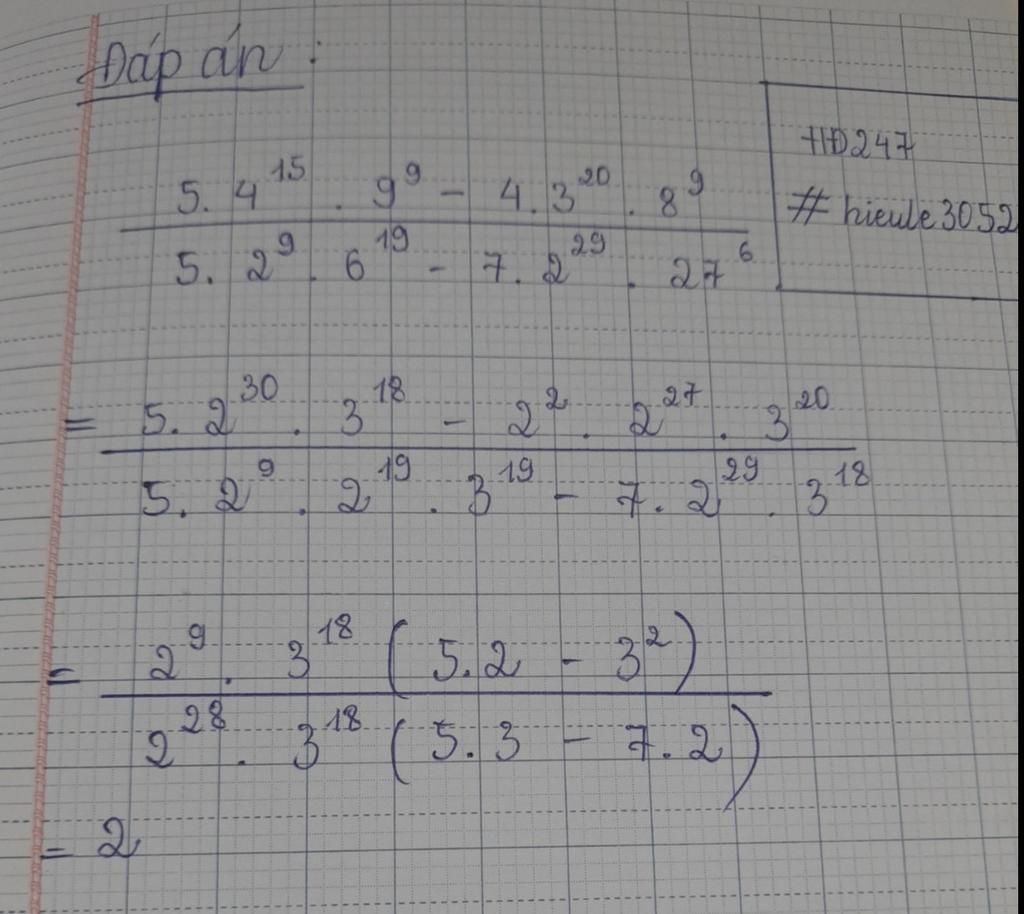 Đáp án :
5. 4^15 . 9^9 - 4. 3^20 . 8^9
5. 2^9 . 6^19 - 7. 2^29 . 27^6
HD247
# hieule3052
= 5. 2^30 . 3^18 - 2^2 . 2^27 . 3^20
5. 2^9 . 2^19 . 3^19 - 7. 2^29 . 3^18
= 2^9 . 3^18 ( 5.2 - 3^2 )
2^28 . 3^18 ( 5.3 - 7.2 )
= 2